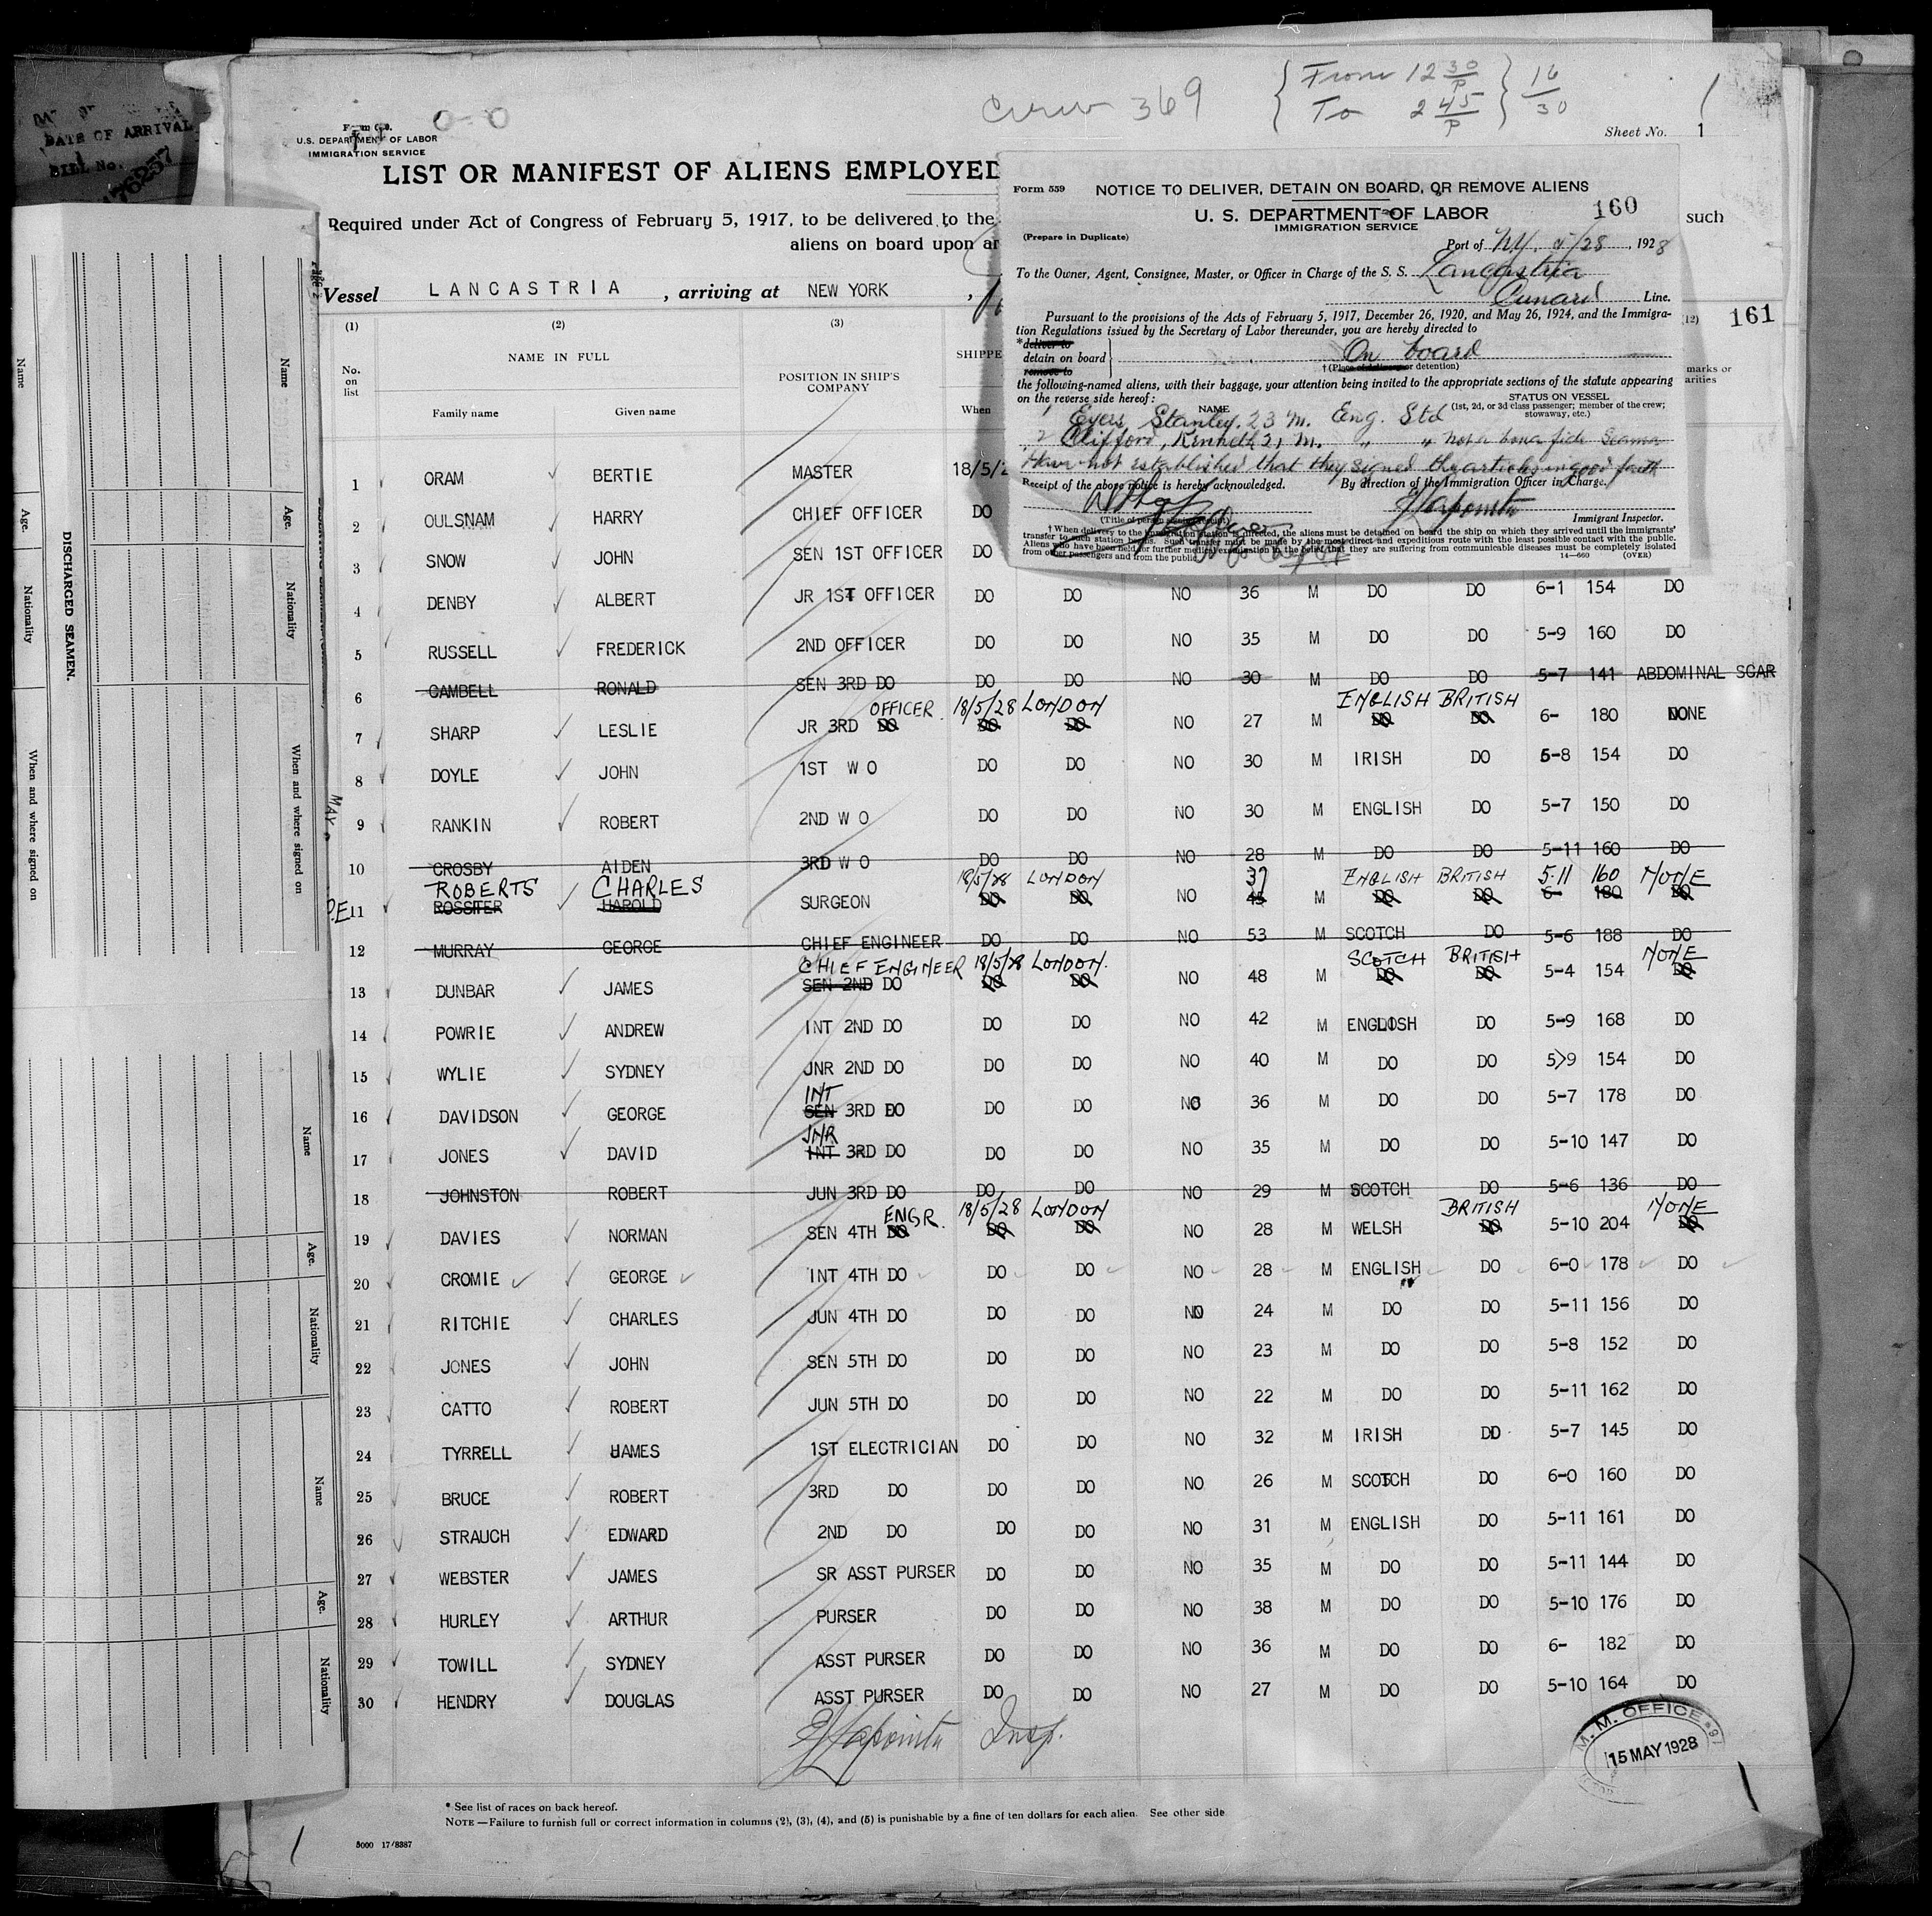 DATE OF ARRIVAL
BILL No.
76257
crew 369
From 12 30/P
To 2 45/P
16/30
Sheet No. 1
U.S. DEPARTMENT OF LABOR
IMMIGRATION SERVICE
LIST OR MANIFEST OF ALIENS EMPLOYED
Required under Act of Congress of February 5, 1917, to be delivered to the
such
aliens on board upon
Vessel LANCASTRIA, arriving at NEW YORK,
Form 559 NOTICE TO DELIVER, DETAIN ON BOARD, OR REMOVE ALIENS
U. S. DEPARTMENT OF LABOR 160
IMMIGRATION SERVICE
(Prepare in Duplicate)
Port of N.Y. /28, 1928
To the Owner, Agent, Consignee, Master, or Officer in Charge of the S. S. Lancastria
Cunard Line.
Pursuant to the provisions of the Acts of February 5, 1917, December 26, 1920, and May 26, 1924, and the Immigra-
tion Regulations issued by the Secretary of Labor thereunder, you are hereby directed to
*deliver to
detain on board On board
remove to †(Place of delivery or detention)
the following-named aliens, with their baggage, your attention being invited to the appropriate sections of the statute appearing
on the reverse side hereof:
NAME STATUS ON VESSEL
(1st, 2d, or 3d class passenger; member of the crew;
stowaway, etc.)
1 Eyers Stanley. 23 M. Eng. Std
2 Clifford, Kenneth 21 M. " " not a bona fide Seaman
Have not established that they signed the articles in good faith
Receipt of the above notice is hereby acknowledged. By direction of the Immigration Officer in Charge.
(Title of person signing receipt)
Immigrant Inspector.
†When delivery to the immigration station is directed, the aliens must be detained on board the ship on which they arrived until the immigrants'
transfer to such station begins. Such transfer must be made by the most direct and expeditious route with the least possible contact with the public.
Aliens who have been held for further medical examination in the belief that they are suffering from communicable diseases must be completely isolated
from other passengers and from the public.
14—660 (OVER)
(1) (2) (3) (12) 161
No. on list
NAME IN FULL
Family name Given name
POSITION IN SHIP'S COMPANY
SHIPPE
When
marks or
arities
1 ORAM BERTIE MASTER 18/5/2
2 OULSNAM HARRY CHIEF OFFICER DO
3 SNOW JOHN SEN 1ST OFFICER DO
4 DENBY ALBERT JR 1ST OFFICER DO DO NO 36 M DO DO 6-1 154 DO
5 RUSSELL FREDERICK 2ND OFFICER DO DO NO 35 M DO DO 5-9 160 DO
6 CAMBELL RONALD SEN 3RD DO DO DO NO 30 M DO DO 5-7 141 ABDOMINAL SCAR
OFFICER 18/5/28 LONDON ENGLISH BRITISH
7 SHARP LESLIE JR 3RD DO DO DO NO 27 M DO DO 6- 180 NONE
8 DOYLE JOHN 1ST W O DO DO NO 30 M IRISH DO 5-8 154 DO
MAY
9 RANKIN ROBERT 2ND W O DO DO NO 30 M ENGLISH DO 5-7 150 DO
10 CROSBY AIDEN 3RD W O DO DO NO 28 M DO DO 5-11 160 DO
ROBERTS CHARLES 18/5/28 LONDON 37 ENGLISH BRITISH 5-11 160 NONE
11 ROSSITER HAROLD SURGEON DO DO NO 45 M DO DO 6- 180 DO
12 MURRAY GEORGE CHIEF ENGINEER DO DO NO 53 M SCOTCH DO 5-6 188 DO
CHIEF ENGINEER 18/5/28 LONDON. SCOTCH BRITISH NONE
13 DUNBAR JAMES SEN 2ND DO DO DO NO 48 M DO DO 5-4 154 DO
14 POWRIE ANDREW INT 2ND DO DO DO NO 42 M ENGLISH DO 5-9 168 DO
15 WYLIE SYDNEY JNR 2ND DO DO DO NO 40 M DO DO 5-9 154 DO
INT
16 DAVIDSON GEORGE SEN 3RD DO DO DO NO 36 M DO DO 5-7 178 DO
JNR
17 JONES DAVID INT 3RD DO DO DO NO 35 M DO DO 5-10 147 DO
18 JOHNSTON ROBERT JUN 3RD DO DO DO NO 29 M SCOTCH DO 5-6 136 DO
ENGR. 18/5/28 LONDON BRITISH NONE
19 DAVIES NORMAN SEN 4TH DO DO DO NO 28 M WELSH DO 5-10 204 DO
20 CROMIE GEORGE INT 4TH DO DO DO NO 28 M ENGLISH DO 6-0 178 DO
21 RITCHIE CHARLES JUN 4TH DO DO DO NO 24 M DO DO 5-11 156 DO
22 JONES JOHN SEN 5TH DO DO DO NO 23 M DO DO 5-8 152 DO
23 CATTO ROBERT JUN 5TH DO DO DO NO 22 M DO DO 5-11 162 DO
24 TYRRELL JAMES 1ST ELECTRICIAN DO DO NO 32 M IRISH DO 5-7 145 DO
25 BRUCE ROBERT 3RD DO DO DO NO 26 M SCOTCH DO 6-0 160 DO
26 STRAUCH EDWARD 2ND DO DO DO NO 31 M ENGLISH DO 5-11 161 DO
27 WEBSTER JAMES SR ASST PURSER DO DO NO 35 M DO DO 5-11 144 DO
28 HURLEY ARTHUR PURSER DO DO NO 38 M DO DO 5-10 176 DO
29 TOWILL SYDNEY ASST PURSER DO DO NO 36 M DO DO 6- 182 DO
30 HENDRY DOUGLAS ASST PURSER DO DO NO 27 M DO DO 5-10 164 DO
Lapointe Insp.
M. M. OFFICE
15 MAY 1928
* See list of races on back hereof.
NOTE—Failure to furnish full or correct information in columns (2), (3), (4), and (5) is punishable by a fine of ten dollars for each alien. See other side
5000 17/8387
DISCHARGED SEAMEN.
Name Age. Nationality When and where signed on
Name Age. Nationality When and where signed on
Name Age. Nationality
Name Age. Nationality